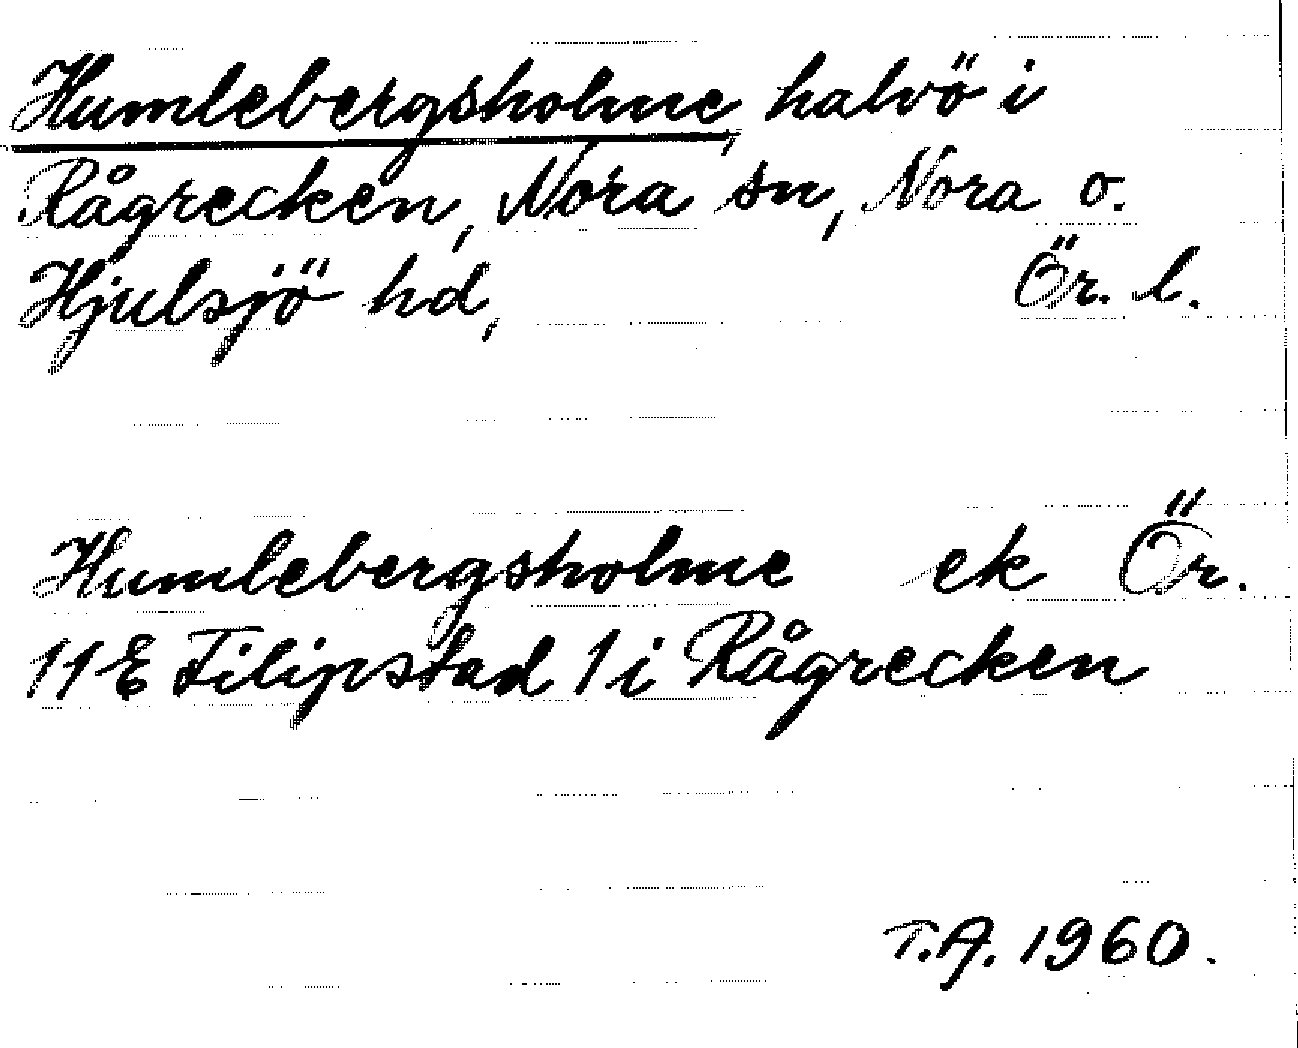 Humlebergsholme, halvö i
Rågrecken, Nora sn, Nora o.
Hjulsjö hd, Ör. l.
Humlebergsholme ek Ör.
11E Filipstad 1 i Rågrecken
T.A. 1960.